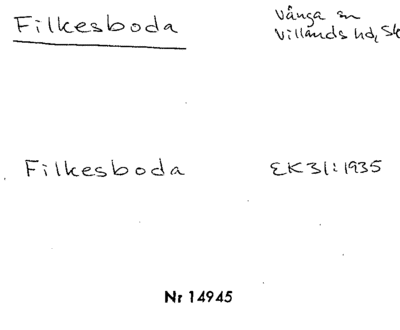 Filkesboda
Vånga sn
Villands hd, Sk
Filkesboda
EK31:1935
Nr 14945